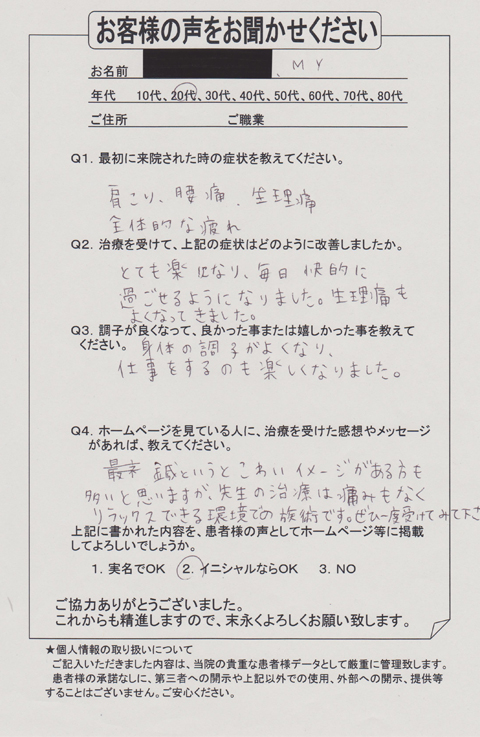 お客様の声をお聞かせください
お名前 、MY
年代 10代、20代、30代、40代、50代、60代、70代、80代
ご住所 ご職業
Q1. 最初に来院された時の症状を教えてください。
肩こり、腰痛、生理痛
全体的な疲れ
Q2. 治療を受けて、上記の症状はどのように改善しましたか。
とても楽になり、毎日快的に
過ごせるようになりました。生理痛も
よくなってきました。
Q3. 調子が良くなって、良かった事または嬉しかった事を教えて
ください。 身体の調子がよくなり、
仕事をするのも楽しくなりました。
Q4. ホームページを見ている人に、治療を受けた感想やメッセージ
があれば、教えてください。
鍼というとこわいイメージがある方も
多いと思いますが、先生の治療は痛みもなく
リラックスできる環境での施術です。ぜひ一度受けてみて下さ
上記に書かれた内容を、患者様の声としてホームページ等に掲載
してよろしいでしょうか。
1. 実名でOK 2. イニシャルならOK 3. NO
ご協力ありがとうございました。
これからも精進しますので、末永くよろしくお願い致します。
★個人情報の取り扱いについて
ご記入いただきました内容は、当院の貴重な患者様データとして厳重に管理致します。
患者様の承諾なしに、第三者への開示や上記以外での使用、外部への開示、提供等
することはございません。ご安心ください。